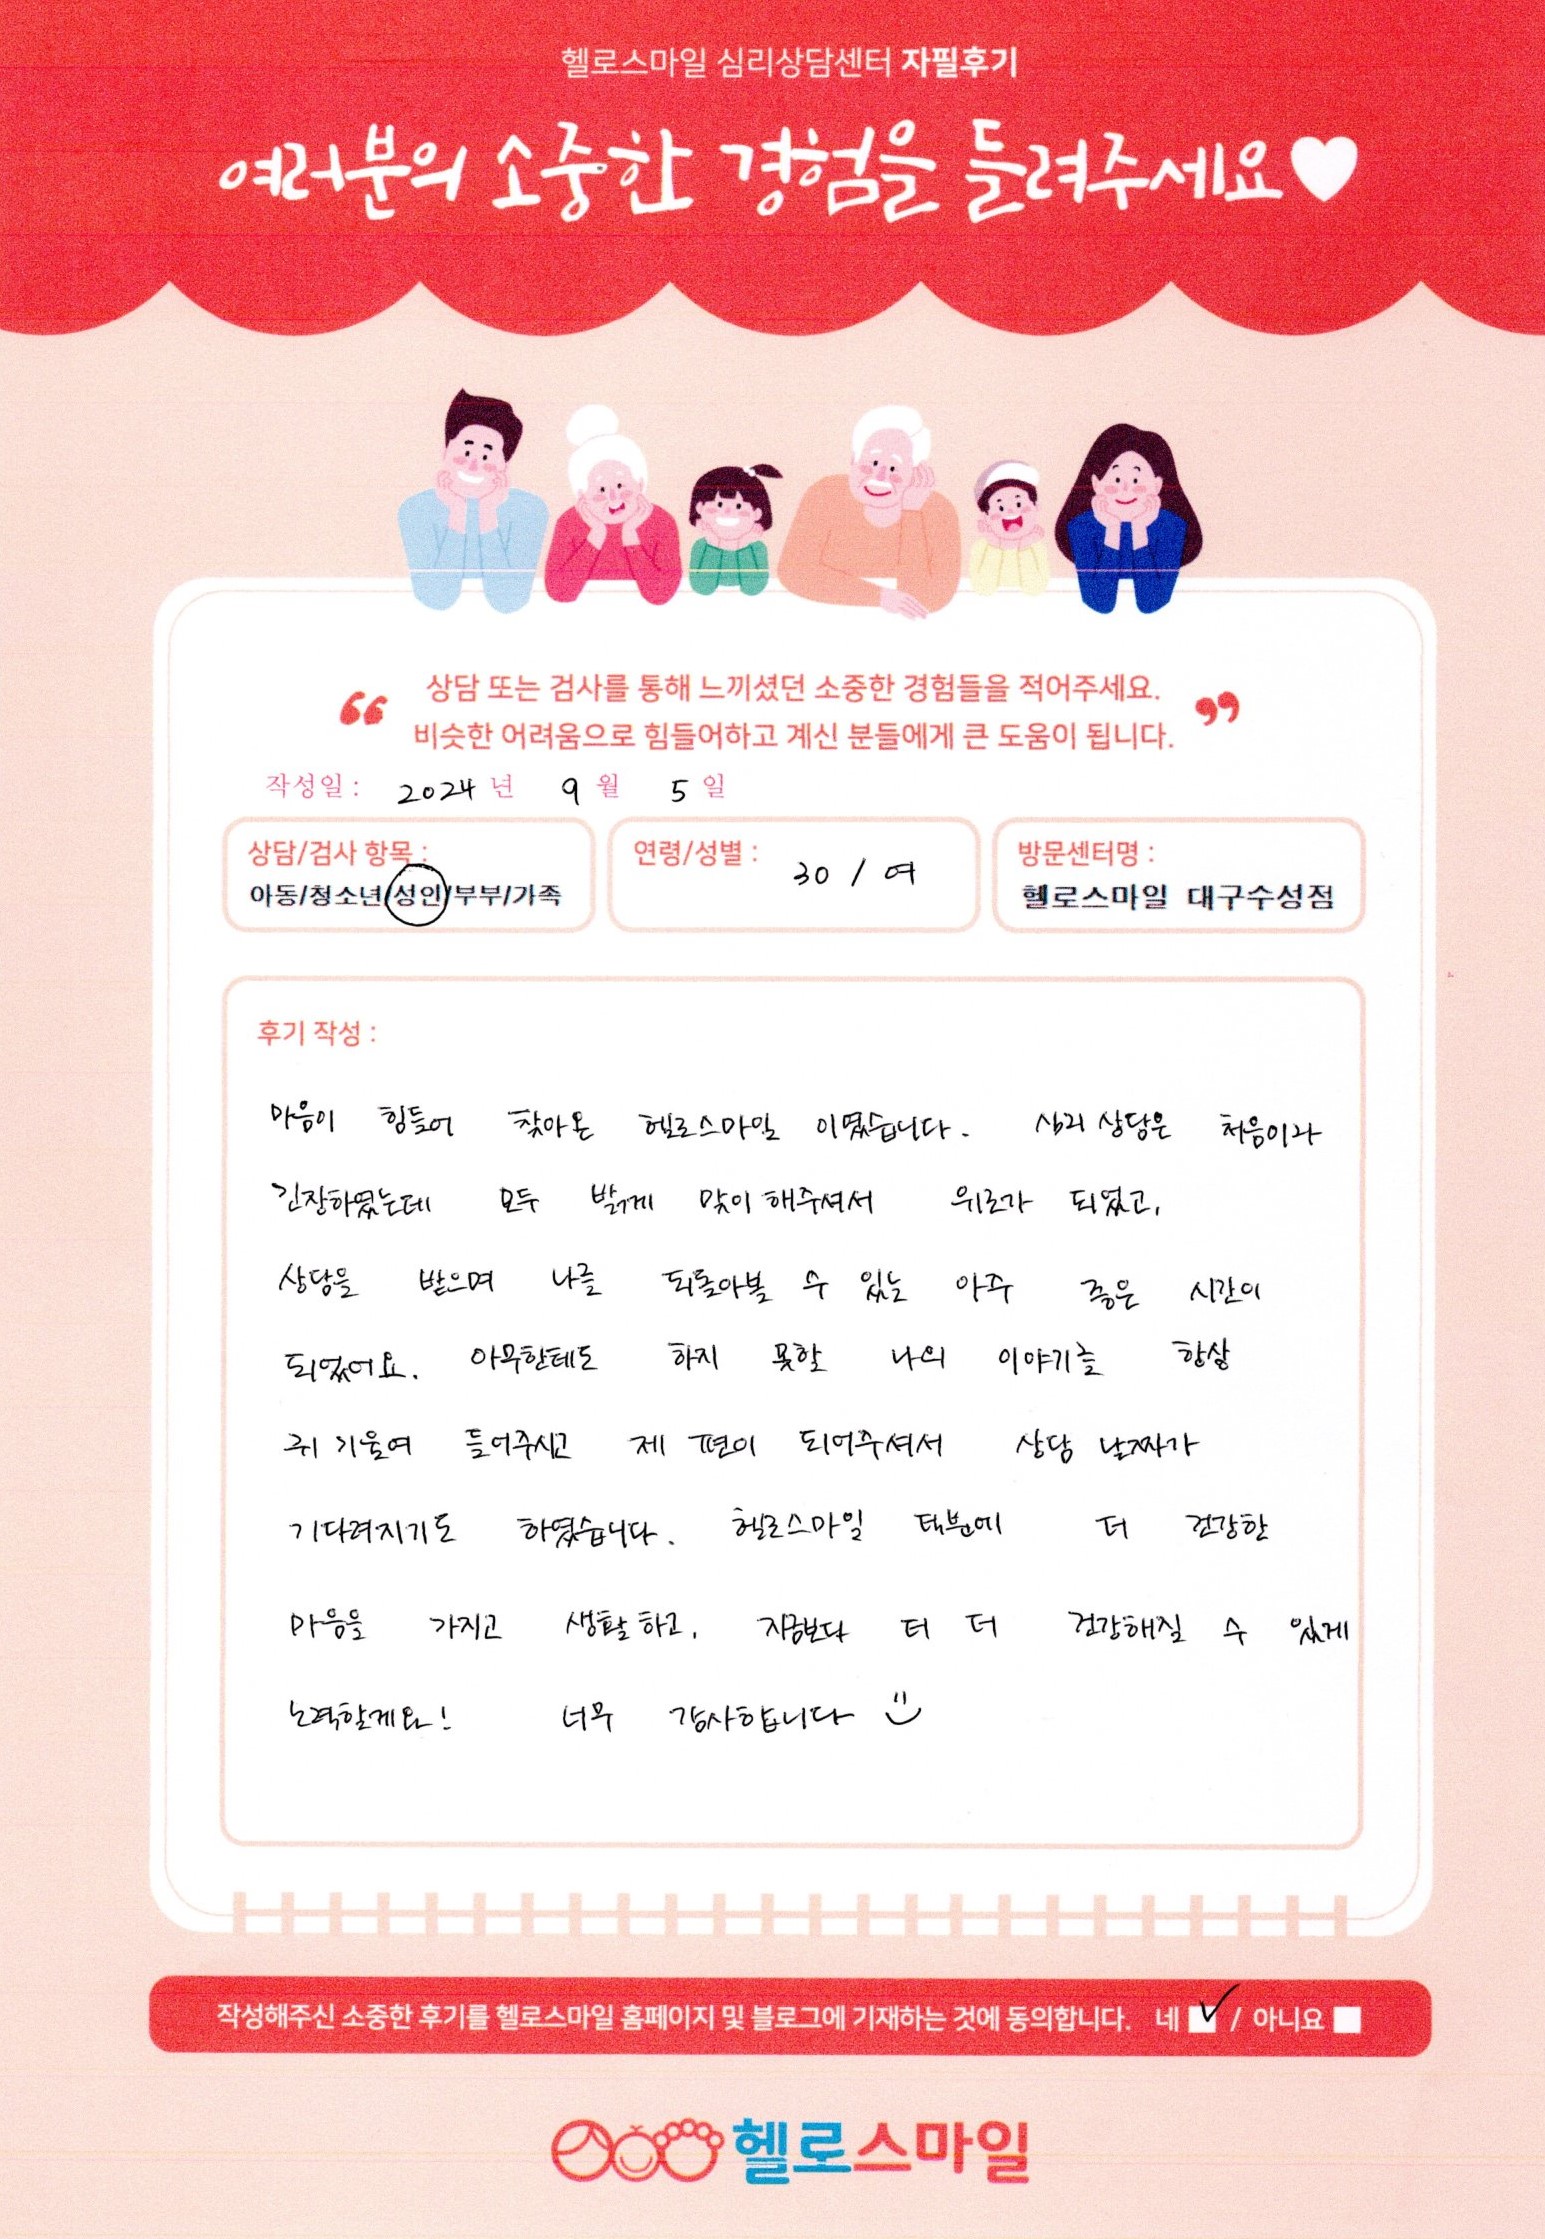 헬로스마일 심리상담센터 자필후기
여러분의 소중한 경험을 들려주세요♥
상담 또는 검사를 통해 느끼셨던 소중한 경험들을 적어주세요.
비슷한 어려움으로 힘들어하고 계신 분들에게 큰 도움이 됩니다.
작성일 : 2024 년 9 월 5 일
상담/검사 항목 :
아동/청소년/성인/부부/가족
연령/성별 : 30 / 여
방문센터명 :
헬로스마일 대구수성점
후기 작성 :
마음이 힘들어 찾아온 헬로스마일 이였습니다. 심리 상담은 처음이라
긴장하였는데 모두 밝게 맞이 해주셔서 위로가 되었고,
상담을 받으며 나를 되돌아볼 수 있는 아주 좋은 시간이
되었어요. 아무한테도 하지 못할 나의 이야기를 항상
귀 기울여 들어주시고 제 편이 되어주셔서 상담 날짜가
기다려지기도 하였습니다. 헬로스마일 덕분에 더 건강한
마음을 가지고 생활 하고, 지금보다 더 더 건강해질 수 있게
노력할게요! 너무 감사합니다
작성해주신 소중한 후기를 헬로스마일 홈페이지 및 블로그에 기재하는 것에 동의합니다. 네 ✓ / 아니요
헬로스마일